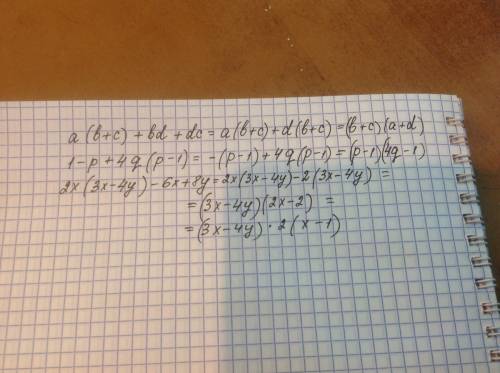 a(b+c)+bd+dc=a(b+c)+d(b+c)=(b+c)(a+d)
1-p+4q(p-1)=-(p-1)+4q(p-1)=(p-1)(4q-1)
2x(3x-4y)-6x+8y=2x(3x-4y)-2(3x-4y)=
=(3x-4y)(2x-2)=
=(3x-4y)·2(x-1)